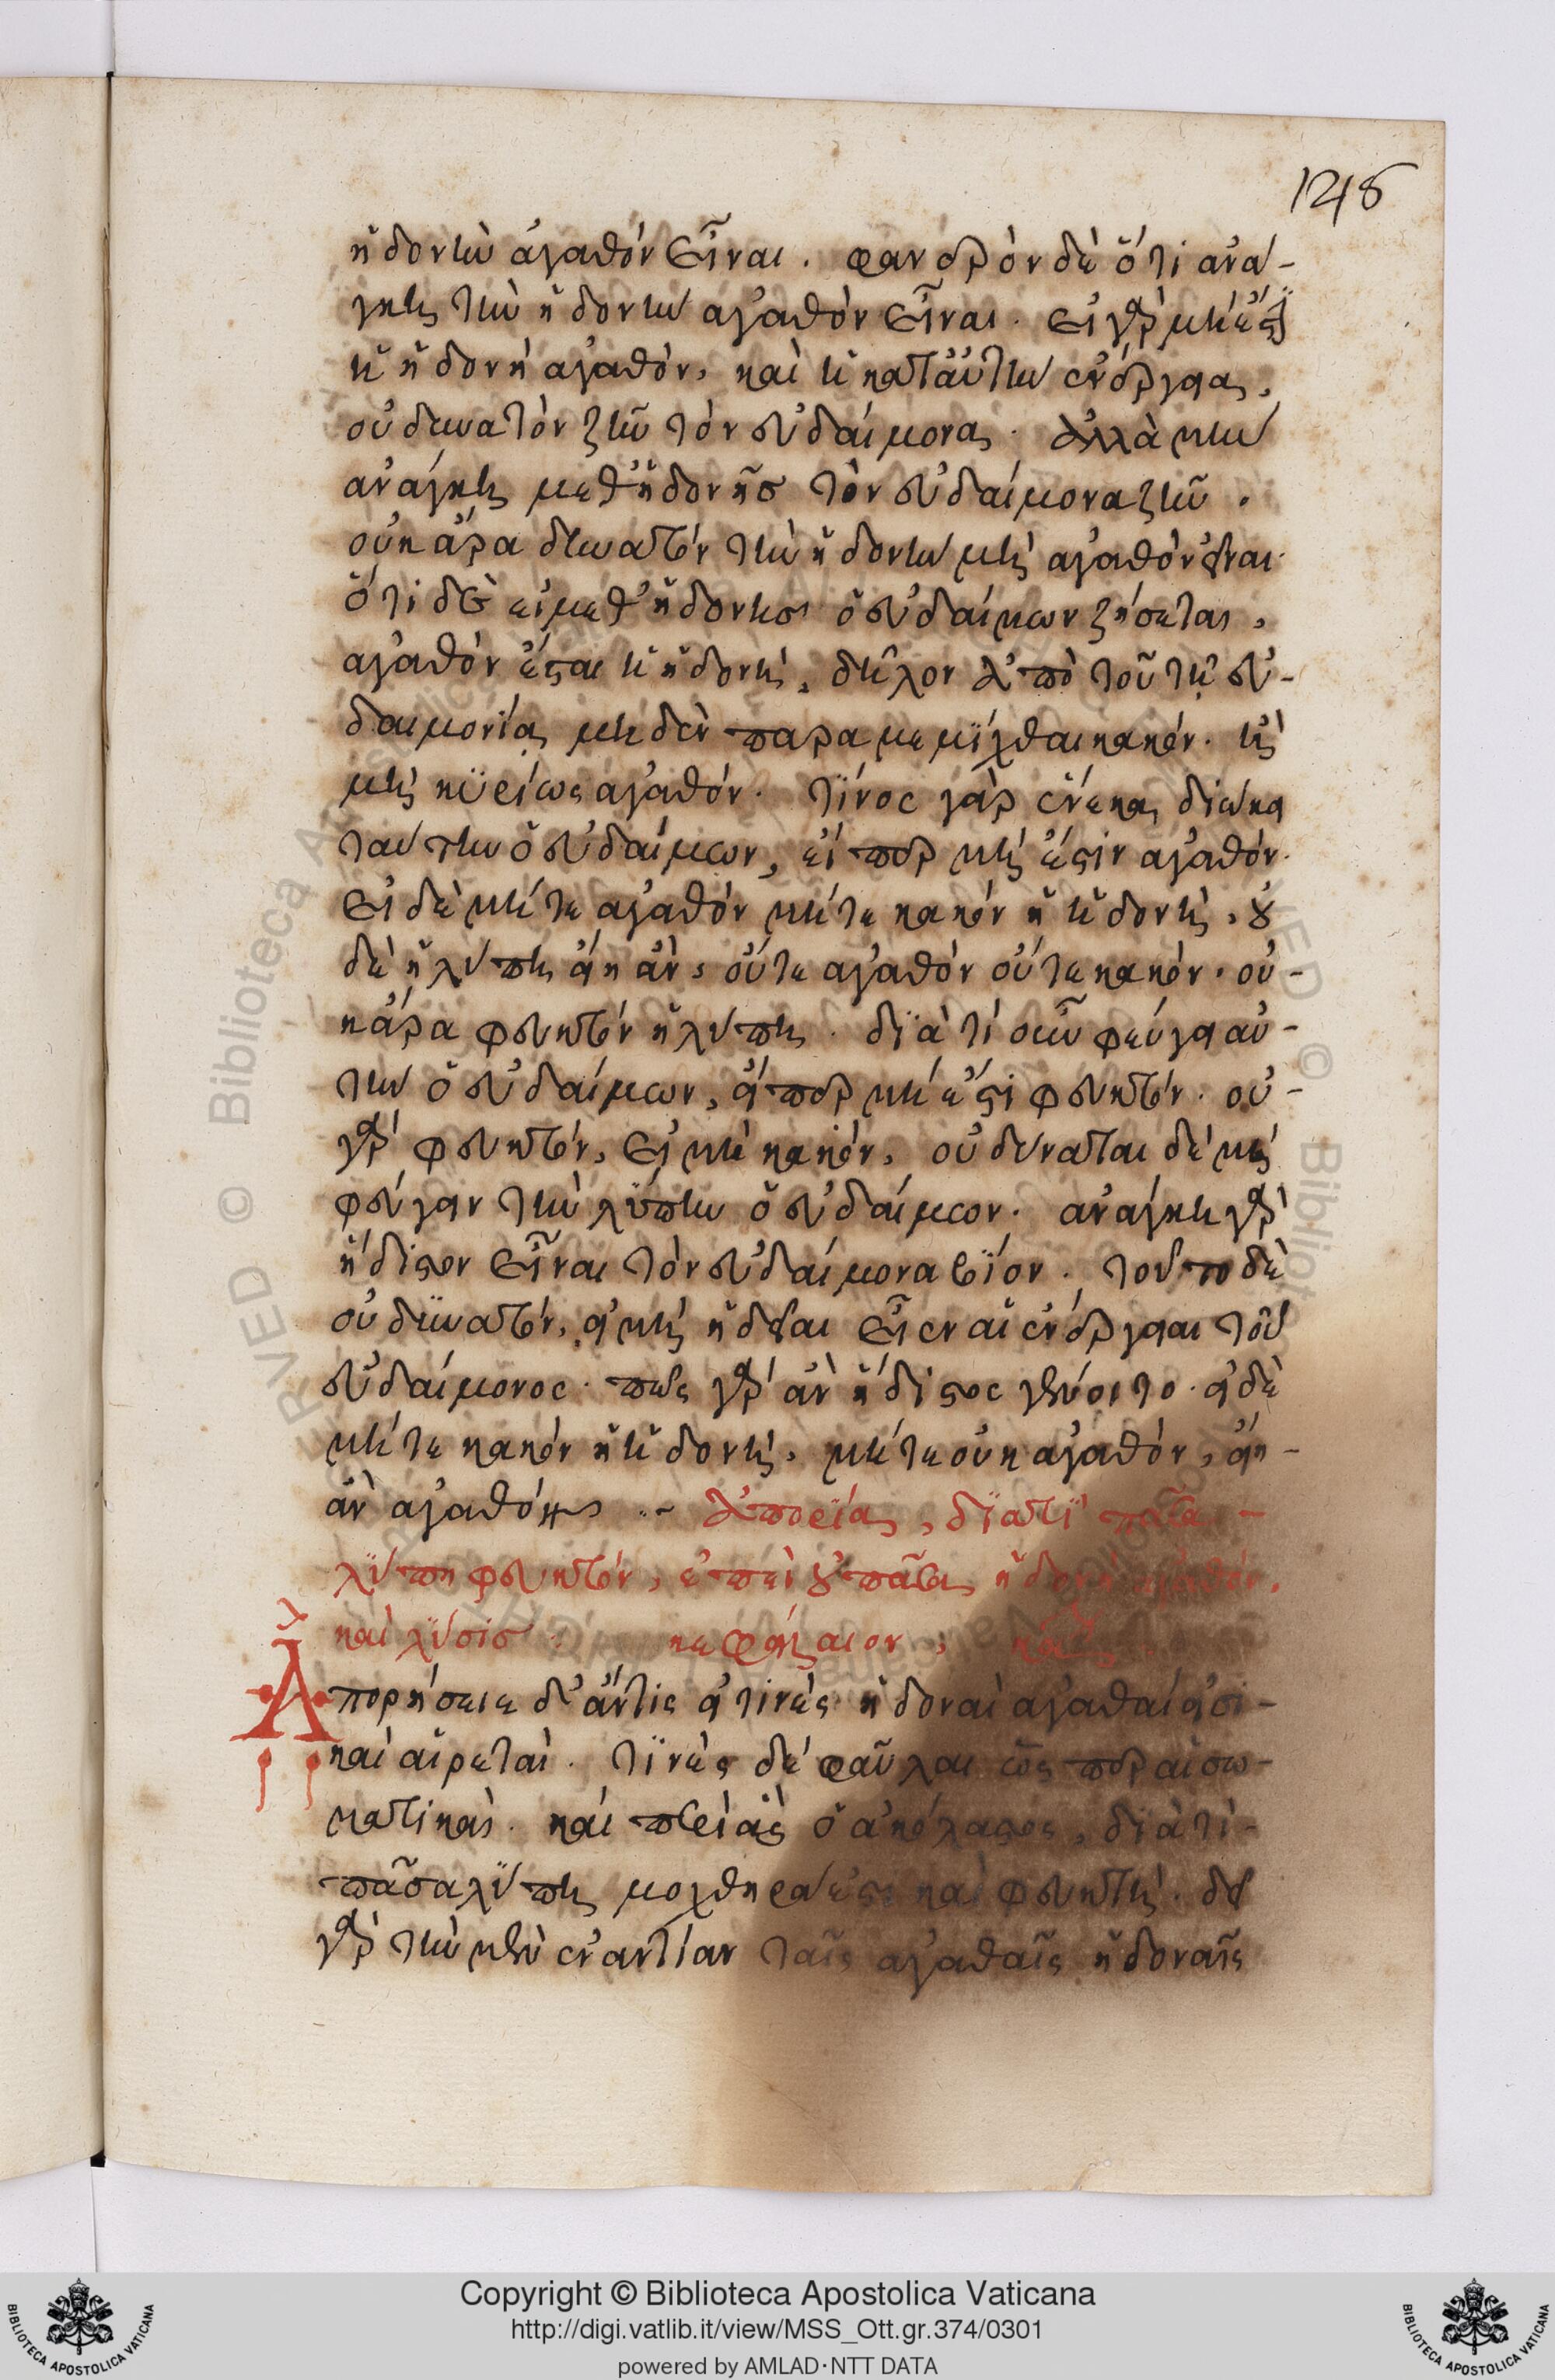 1248
ἡδονὴν ἀγαθὸν εἶναι. φανερὸν δὲ ὅτι ἀνά-
γκη τὴν ἡδονὴν ἀγαθὸν εἶναι. εἰ γὰρ μή ἐστιν
ἡ ἡδονὴ ἀγαθόν, καὶ ἡ κατ' αὐτὴν ἐνέργεια,
οὐ δυνατὸν ζῆν τὸν εὐδαίμονα. ἀλλὰ μὴν
ἀνάγκη μεθ' ἡδονῆς τὸν εὐδαίμονα ζῆν.
οὐκ ἄρα δυνατὸν τὴν ἡδονὴν μὴ ἀγαθὸν εἶναι.
ὅτι δὲ εἰ μεθ' ἡδονῆς ὁ εὐδαίμων ζήσεται,
ἀγαθὸν ἔσται ἡ ἡδονή, δῆλον ἀπὸ τοῦ τῇ εὐ-
δαιμονίᾳ μηδὲν παραμεμίχθαι κακόν. ἢ
μὴ κυρίως ἀγαθόν. τίνος γὰρ ἕνεκα διώκει
ταύτην ὁ εὐδαίμων, εἴπερ μή ἐστιν ἀγαθόν.
εἰ δὲ μήτε ἀγαθὸν μήτε κακὸν ἡ ἡδονή, οὐ
δὲ ἡ λύπη εἴη ἄν, οὔτε ἀγαθὸν οὔτε κακόν. οὐ-
κ ἄρα φευκτὸν ἡ λύπη. διὰ τί οὖν φεύγει αὐ-
τὴν ὁ εὐδαίμων, εἴπερ μή ἐστι φευκτόν. οὐ
γὰρ φευκτόν, εἰ μὴ κακόν, οὐ δύναται δὲ μὴ
φεύγειν τὴν λύπην ὁ εὐδαίμον. ἀνάγκη γὰρ
ἥδιστον εἶναι τὸν εὐδαίμονα βίον. τοῦτο δὲ
οὐ δυνατόν, εἰ μὴ ἡδεῖαι εἶεν αἱ ἐνέργειαι τοῦ
εὐδαίμονος. πῶς γὰρ ἂν ἥδιστος γένοιτο. εἰ δὲ
μήτε κακὸν ἡ ἡδονή, μήτε οὐκ ἀγαθόν, εἴη
ἂν ἀγαθόν. ἀπορία, διατί πᾶσα
λύπη φευκτόν, ἐπεὶ οὐ πᾶσα ἡδονὴ ἀγαθόν,
καὶ λύσις. κεφάλαιον,
Ἀπορήσειε δ' ἄν τις εἰ τινὲς ἡδοναὶ ἀγαθαί εἰσι
καὶ αἱρεταί. τινὲς δὲ φαῦλαι ὥσπερ αἱ σω-
ματικαὶ. καὶ περὶ ἃς ὁ ἀκόλαστος, διὰ τί
πᾶσα λύπη μοχθηρά ἐστι καὶ φευκτή. δεῖ
γὰρ τὴν μὲν ἐναντίαν ταῖς ἀγαθαῖς ἡδοναῖς
Copyright © Biblioteca Apostolica Vaticana
http://digi.vatlib.it/view/MSS_Ott.gr.374/0301
powered by AMLAD·NTT DATA